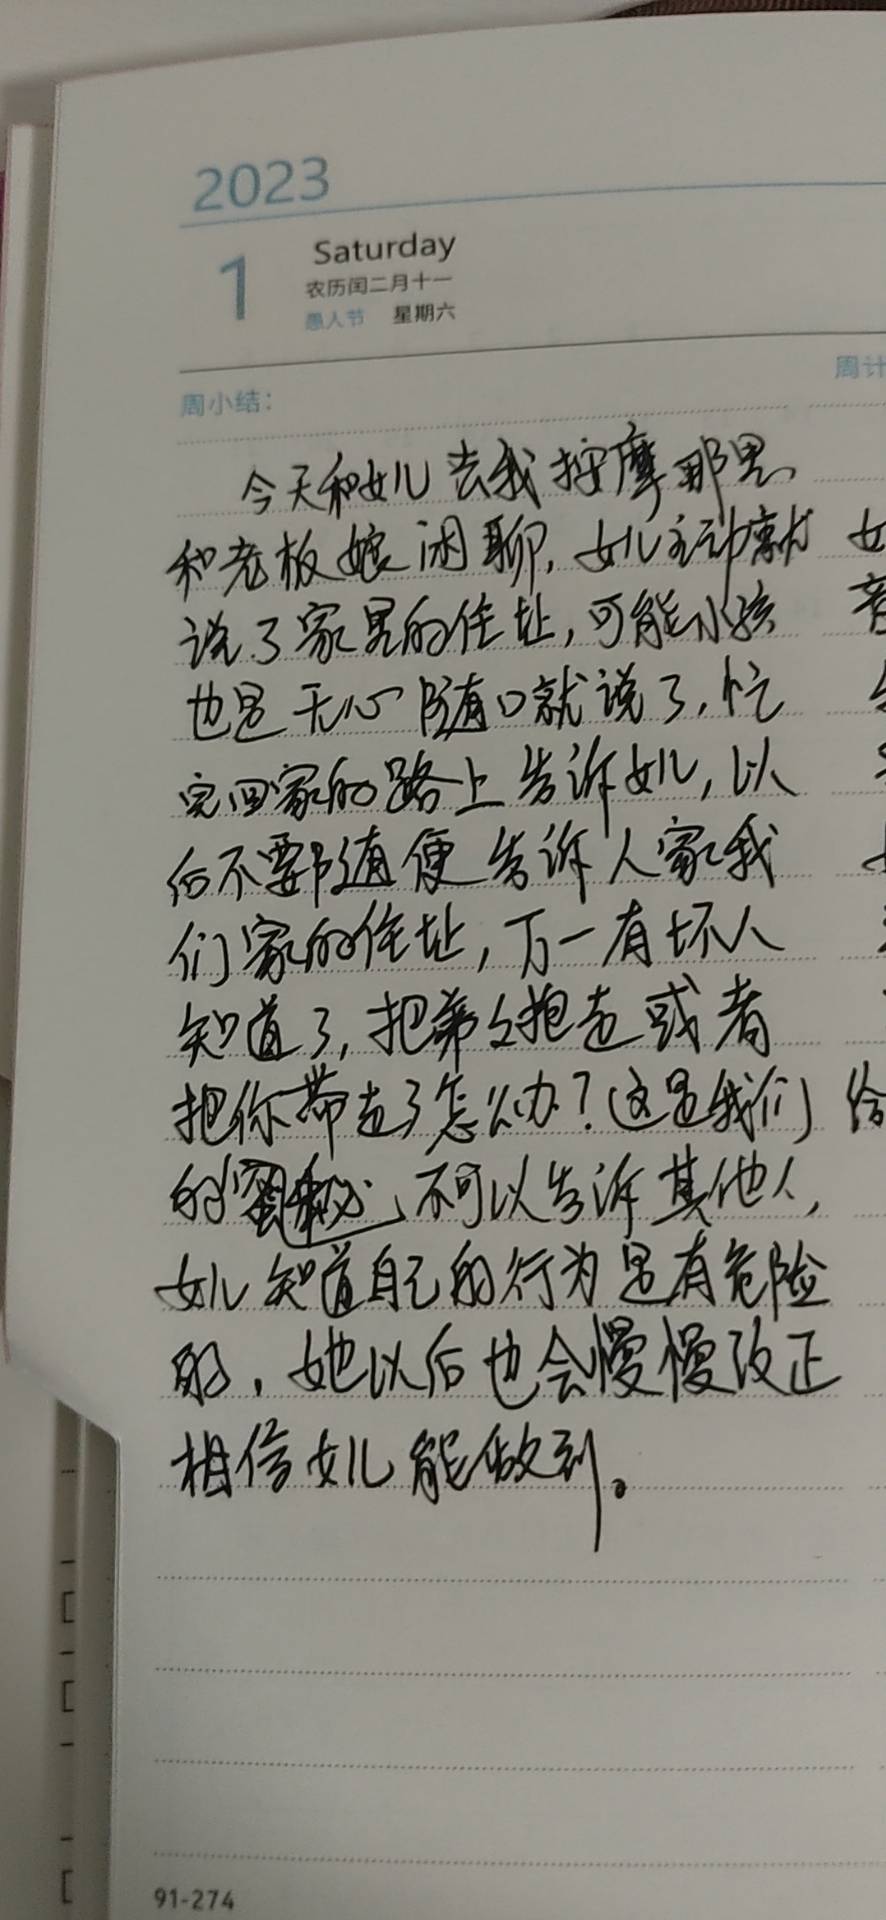 2023
1 Saturday
农历闰二月十一
愚人节 星期六
周小结：
周计
今天和女儿去我按摩那里、
和老板娘闲聊，女儿主动就
说了家里的住址，可能小孩
也是无心随口就说了，忙
完回家的路上告诉女儿，以
后不要随便告诉人家我
们家的住址，万一有坏人
知道了，把弟弟抱走或者
把你带走了怎么办？这是我们
的秘，不可以告诉其他人，
女儿知道自己的行为是有危险
的，她以后也会慢慢改正
相信女儿能做到。
给
91-274